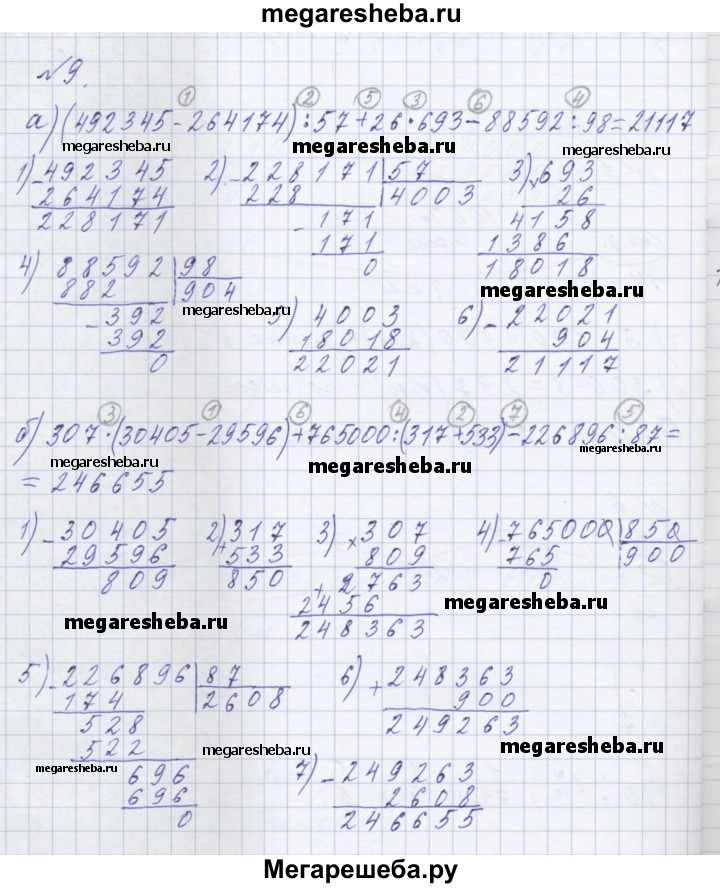 megaresheba.ru
№9.
1 2 5 3 6 4
а) (492345-264174):57+26·693-88592:98=21117
megaresheba.ru megaresheba.ru
1) -492345 2) -228171|57 3) ×693
264174 228 4003 26
228171 -171 4158
171 1386
0 18018
megaresheba.ru
4) 88592|98
882 904
megaresheba.ru
-392 5) 4003 6) -22021
392 18018 904
0 22021 21117
3 1 6 4 2 7 5
б) 307·(30405-29596)+765000:(317+533)-226896:87=
megaresheba.ru megaresheba.ru megaresheba.ru
= 246655
1) -30405 2) +317 3) ×307 4) -765000|850
29596 533 809 765 900
809 850 +2763 0
2456
248363
megaresheba.ru megaresheba.ru
5) -226896|87 6) +248363
174 2608 900
528 249263
522
megaresheba.ru megaresheba.ru megaresheba.ru
696 7) -249263
696 2608
0 246655
Мегарешеба.ру